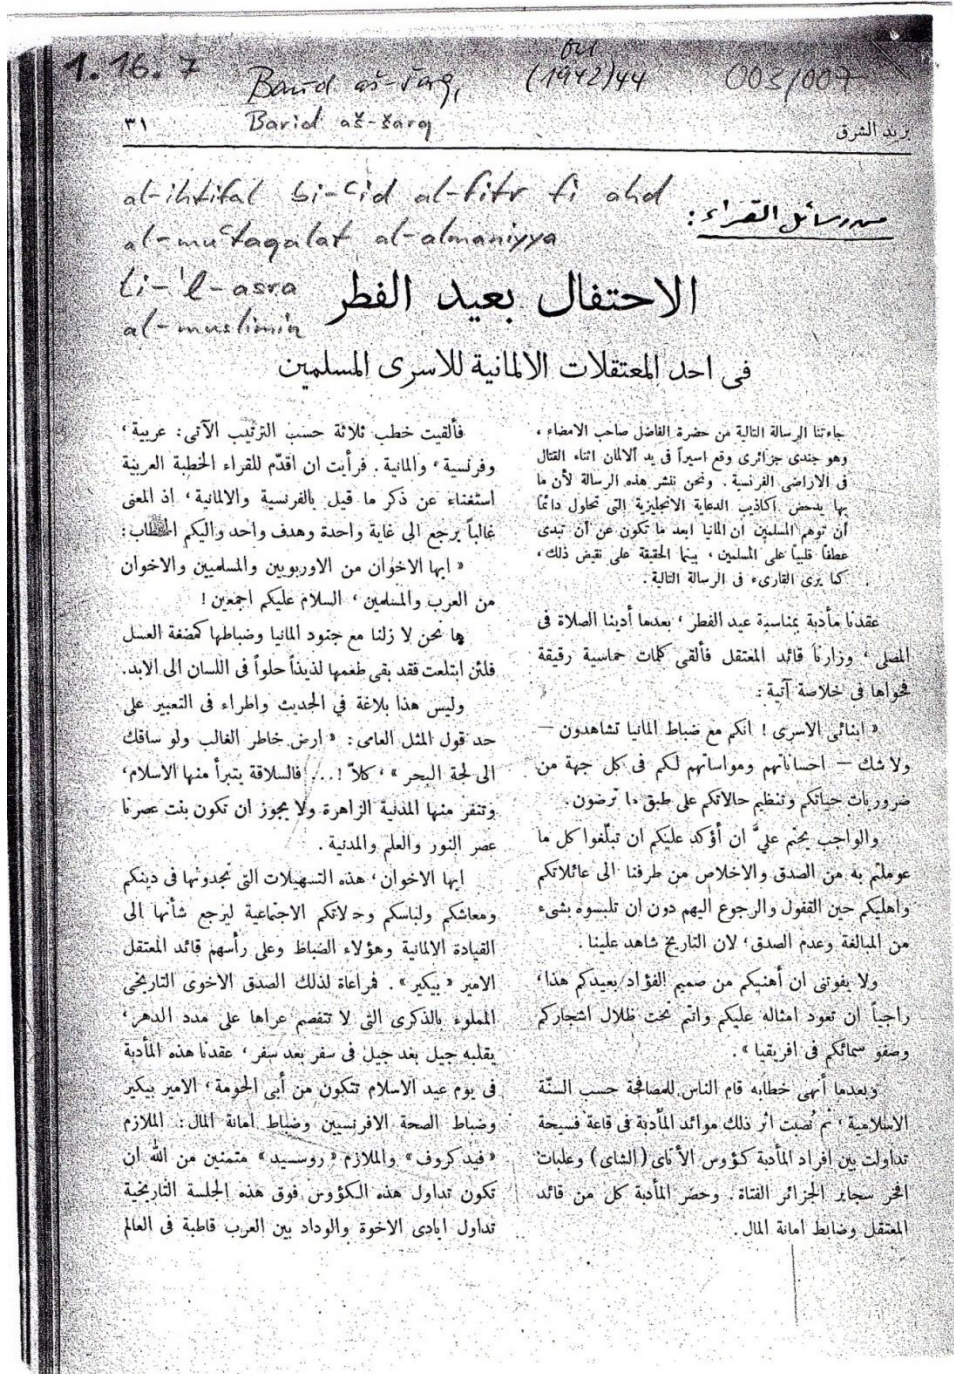 1.16.7
Barīd aš-šarq,
Barid aš-šarq
(1942) 44
003/007
٣١
بريد الشرق
al-ihtifal bi-ʿid al-fitr fi ahd
al-muʿtaqalat al-almaniyya
li-'l-asra
al-muslimin
من رسائل القراء:
الاحتفال بعيد الفطر
فى احد المعتقلات الالمانية للاسرى المسلمين
جاءتنا الرسالة التالية من حضرة الفاضل صاحب الامضاء،
وهو جندى جزائرى وقع اسيراً فى يد الالمان اثناء القتال
فى الاراضى الفرنسية. ونحن ننشر هذه الرسالة لأن ما
بها يدحض اكاذيب الدعاية الانجليزية التى تحاول دائماً
أن توهم المسلمين ان المانيا ابعد ما تكون عن أن تبدى
عطفاً قلبياً على المسلمين، بينما الحقيقة على نقيض ذلك،
كما يرى القارىء فى الرسالة التالية.
عقدنا مأدبة بمناسبة عيد الفطر، بعدما أدينا الصلاة فى
المصلى، وزارنا قائد المعتقل فألقى كلمات حماسية رقيقة
فحواها فى خلاصة آتية:
« ابنائى الاسرى! انكم مع ضباط المانيا تشاهدون —
ولا شك — احساناتهم ومواساتهم لكم فى كل جهة من
ضروريات حياتكم وتنظيم حالاتكم على طبق ما ترضون.
والواجب يحتم عليَّ ان أؤكد عليكم ان تبلّغوا كل ما
عوملتم به من الصدق والاخلاص من طرفنا الى عائلاتكم
واهليكم حين القفول والرجوع اليهم دون ان تلبسوه بشىء
من المبالغة وعدم الصدق، لان التاريخ شاهد علينا.
ولا يفوتنى ان أهنيكم من صميم الفؤاد بعيدكم هذا،
راجياً ان تعود امثاله عليكم وانتم تحت ظلال اشجاركم
وصفو سمائكم فى افريقيا».
وبعدما أنهى خطابه قام الناس للمصافحة حسب السنّة
الاسلامية، ثم نُصبت اثر ذلك موائد المأدبة فى قاعة فسيحة
تداولت بين افراد المأدبة كؤوس الأتاى (الشاى) وعلبات
افخر سجاير الجزائر الفتاة. وحضر المأدبة كل من قائد
المعتقل وضابط امانة المال.
فألقيت خطب ثلاثة حسب الترتيب الآتى: عربية،
وفرنسية، والمانية. فرأيت ان اقدّم للقراء الخطبة العربية
استغناء عن ذكر ما قيل بالفرنسية والالمانية، اذ المعنى
غالباً يرجع الى غاية واحدة وهدف واحد واليكم الخطاب:
« ايها الاخوان من الاوربويين والمسلميين والاخوان
من العرب والمسلمين، السلام عليكم اجمعين!
ها نحن لا زلنا مع جنود المانيا وضباطها كمضغة العسل
فلئن ابتلعت فقد بقى طعمها لذيذاً حلواً فى اللسان الى الابد.
وليس هذا بلاغة في الحديث واطراء فى التعبير على
حد قول المثل العامى: « ارض خاطر الغالب ولو ساقك
الى لجة البحر»، كلاّ!... فالسلاقة يتبرأ منها الاسلام،
وتنفر منها المدنية الزاهرة ولا يجوز ان تكون بنت عصرنا
عصر النور والعلم والمدنية.
ايها الاخوان، هذه التسهيلات التى تجدونها فى دينكم
ومعاشكم ولباسكم وحالاتكم الاجتماعية ليرجع شأنها الى
القيادة الالمانية وهؤلاء الضباط وعلى رأسهم قائد المعتقل
الامير « بيكير». فمراعاة لذلك الصدق الاخوى التاريخى
المملوء بالذكرى التى لا تنفصم عراها على مدد الدهر،
يقلبه جيل بعد جيل فى سفر بعد سفر، عقدنا هذه المأدبة
فى يوم عيد الاسلام تتكون من أبى الحومة، الامير بيكير
وضباط الصحة الافرنسيين وضباط امانة المال: الملازم
«فيدكروف» والملازم «روسيد» متمنين من الله ان
تكون تداول هذه الكؤوس فوق هذه الجلسة التاريخية
تداول ايادى الاخوة والوداد بين العرب قاطبة فى العالم